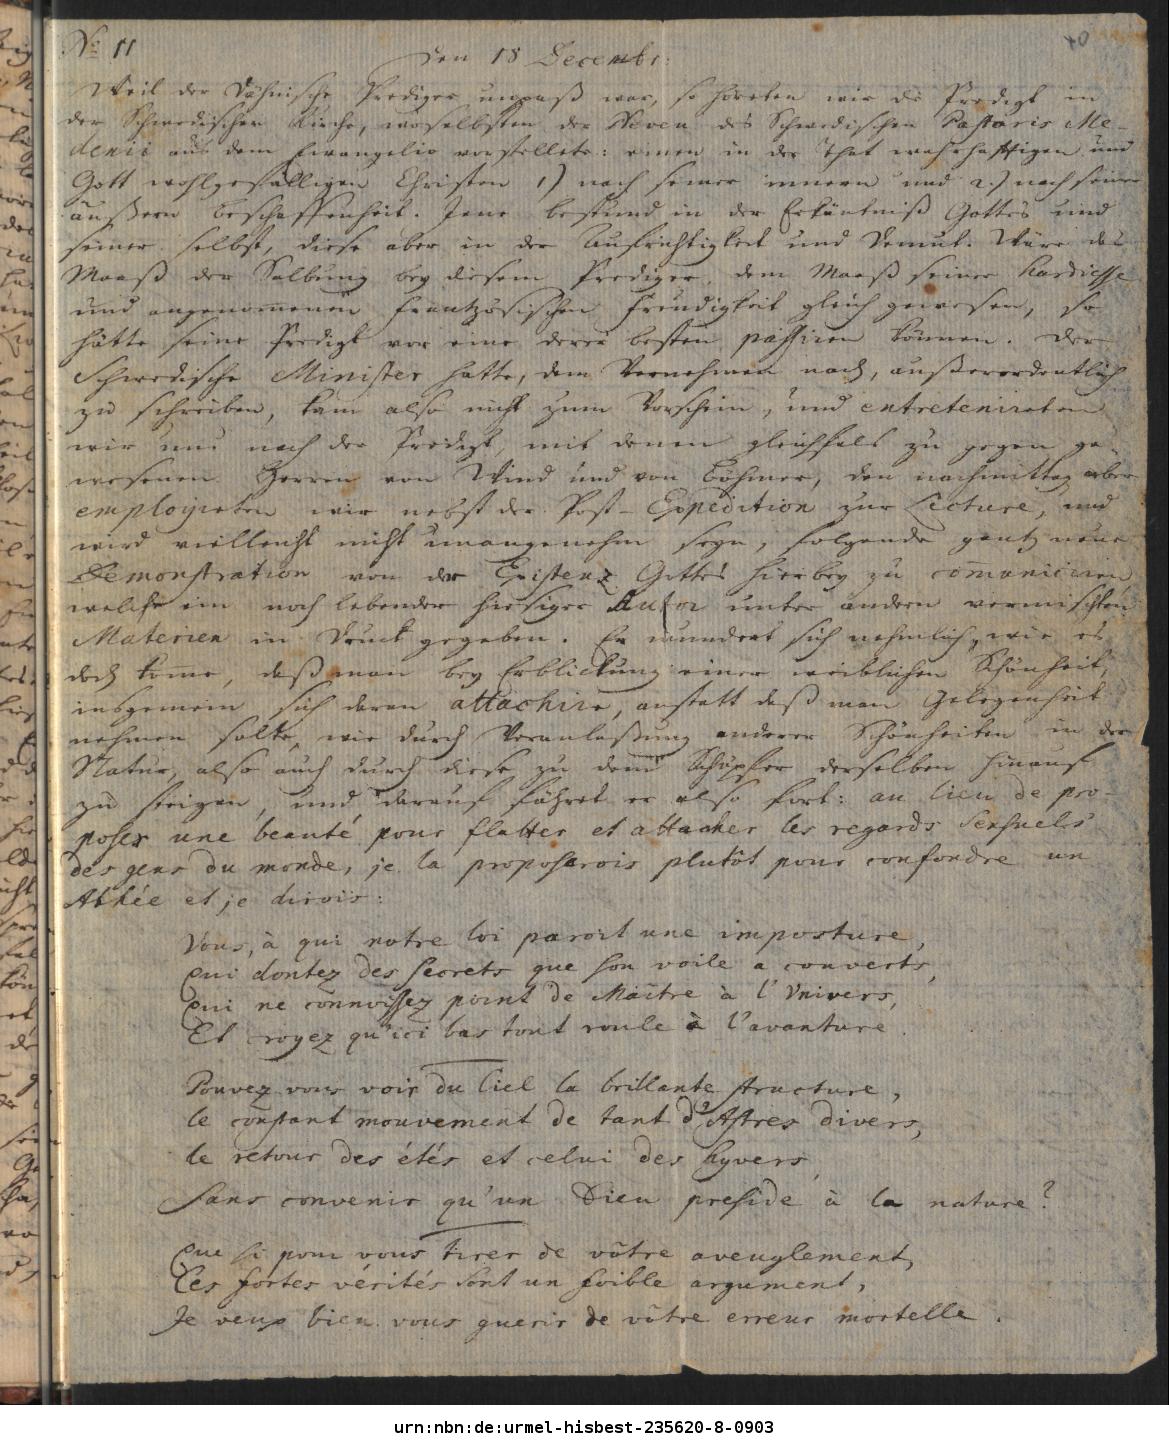 No 11
40
den 18 Decembr:
Weil der Dähnische Prediger unpaß war, so höreten wir die Predigt in
der Schwedischen Kirche, woselbsten der Neveu des Schwedischen Pastoris Me-
denii aus dem Evangelio vorstellete: einen in der That wahrhafftigen und
Gott wohlgefälligen Christen 1) nach seiner innern und 2.) nach seiner
äußern beschaffenheit. Jene bestund in der Erkäntniß Gottes und
seiner selbst, diese aber in der Aufrichtigkeit und Demut. Wäre das
Maaß der Salbung bey diesem Prediger, dem Maaß seiner hardiesse
und angenom̅enen frantzösischen freudigkeit gleich gewesen, so
hätte seine Predigt vor eine derer besten passiren können. Der
Schwedische Minister hatte, dem Vernehmen nach, außerordentlich
zu schreiben, kam also nicht zum Vorschein, und entretenireten
wir uns nach der Predigt, mit denen gleichfals zu gegen ge-
wesenen Herren von Wind und von Böhmer, den nachmittag aber
employreten wir nebst der Post-Expedition zur Lecture, und
wird vielleicht nicht unangenehm seyn, folgende gantz neue
Demonstration von der Existenz Gottes hierbey zu com̅uniciren
welche ein noch lebender hiesiger Autor unter andern vermischten
Materien in Druck gegeben. Er wundert sich nehmlich, wie es
doch kom̅e, daß man bey Erblickung einer weiblichen Schönheit,
insgemein sich daran attachire, anstatt daß man Gelegenheit
nehmen solte, wie durch Veranlaßung anderer Schönheiten in der
Natur, also auch durch diese zu dem Schöpfer derselben hinauf
zu steigen, und darauf fähret er also fort: au lieu de pro-
poser une beauté pour flatter et attacher les regards sensuels
des gens du monde, je la proposerois plutôt pour confondre un
Athée et je dirois:
Vous, à qui notre loi paroit une imposture,
Qui doutez des secrets que son voile a couverts,
Qui ne connoissez point de Maître à l'Univers,
Et croyez qu'ici bas tout roule à l'avanture.
Pouvez vous voir du Ciel la brillante structure,
le constant mouvement de tant d'Astres divers,
le retour des étés et celui des hyvers,
Sans convenir qu'un Dieu preside à la nature?
Que si pour vous tirer de vôtre aveuglement,
Ces fortes vérités sont un foible argument,
Je veux bien vous guerir de vôtre erreur mortelle.
urn:nbn:de:urmel-hisbest-235620-8-0903